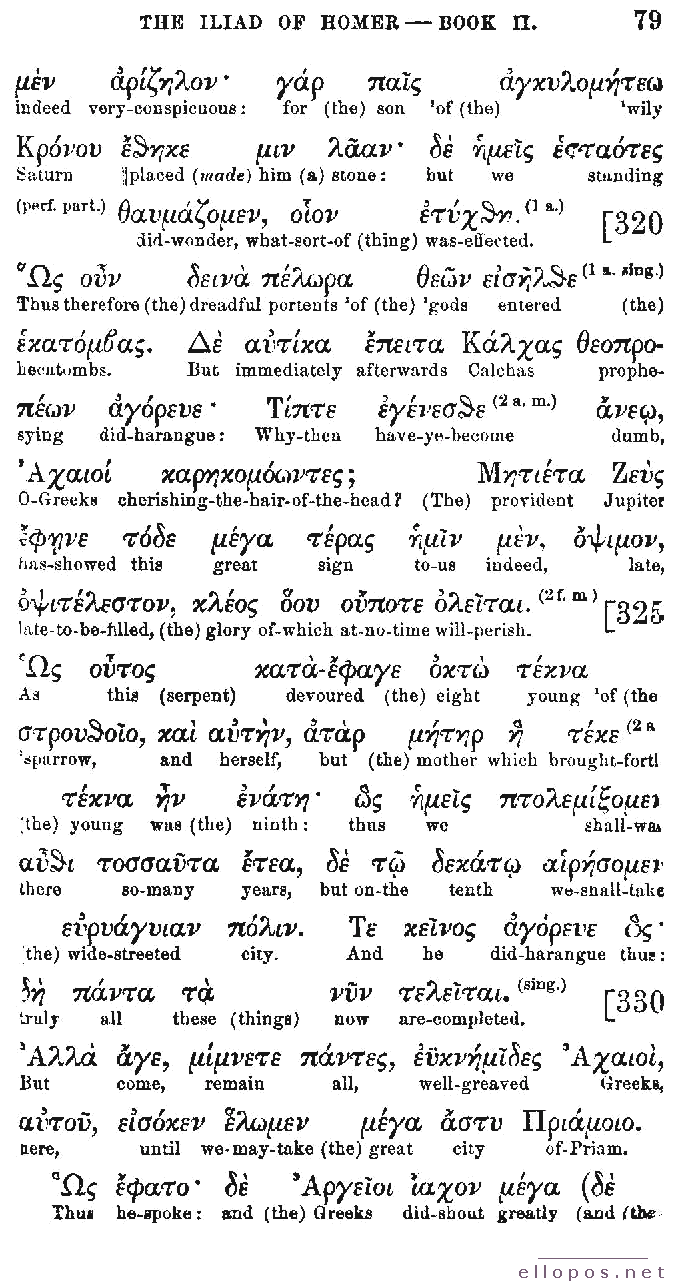 THE ILIAD OF HOMER — BOOK II. 79
μὲν ἀρίζηλον· γάρ παῖς ἀγκυλομήτεω
indeed very-conspicuous: for (the) son ²of (the) ¹wily
Κρόνου ἔθηκε μιν λᾶαν· δὲ ἡμεῖς ἑσταότες
Saturn ‖placed (made) him (a) stone: but we standing
(perf. part.) θαυμάζομεν, οἷον ἐτύχθη. (1 a.) [320
did-wonder, what-sort-of (thing) was-effected.
Ὣς οὖν δεινὰ πέλωρα θεῶν εἰσῆλθε (1 a. sing.)
Thus therefore (the) dreadful portents ²of (the) ³gods entered (the)
ἑκατόμβας. Δὲ αὐτίκα ἔπειτα Κάλχας θεοπρο-
hecatombs. But immediately afterwards Calchas prophe-
πέων ἀγόρευε· Τίπτε ἐγένεσθε (2 a. m.) ἄνεῳ,
sying did-harangue: Why-then have-ye-become dumb,
Ἀχαιοί καρηκομόωντες; Μητιέτα Ζεὺς
O-Greeks cherishing-the-hair-of-the-head? (The) provident Jupiter
ἔφηνε τόδε μέγα τέρας ἡμῖν μὲν, ὄψιμον,
has-showed this great sign to-us indeed, late,
ὀψιτέλεστον, κλέος ὅου οὔποτε ὀλεῖται. (2 f. m) [325
late-to-be-filled, (the) glory of-which at-no-time will-perish.
Ὡς οὗτος κατὰ-ἔφαγε ὀκτὼ τέκνα
As this (serpent) devoured (the) eight young ²of (the
στρουθοῖο, καὶ αὐτὴν, ἀτὰρ μήτηρ ἣ τέκε (2 a
³sparrow, and herself, but (the) mother which brought-fortl
τέκνα ἦν ἐνάτη· ὣς ἡμεῖς πτολεμίξομεν
(the) young was (the) ninth: thus we shall-war
αὖθι τοσσαῦτα ἔτεα, δὲ τῷ δεκάτῳ αἱρήσομεν
there so-many years, but on-the tenth we-shall-take
εὐρυάγυιαν πόλιν. Τε κεῖνος ἀγόρευε ὥς·
(the) wide-streeted city. And he did-harangue thus:
δὴ πάντα τὰ νῦν τελεῖται. (sing.) [330
truly all these (things) now are-completed.
Ἀλλὰ ἄγε, μίμνετε πάντες, ἐϋκνήμῖδες Ἀχαιοὶ,
But come, remain all, well-greaved Greeks,
αὐτοῦ, εἰσόκεν ἕλωμεν μέγα ἄστυ Πριάμοιο.
here, until we-may-take (the) great city of-Priam.
Ὣς ἔφατο· δὲ Ἀργεῖοι ἴαχον μέγα (δὲ
Thus he-spoke: and (the) Greeks did-shout greatly (and (the
ellopos.net